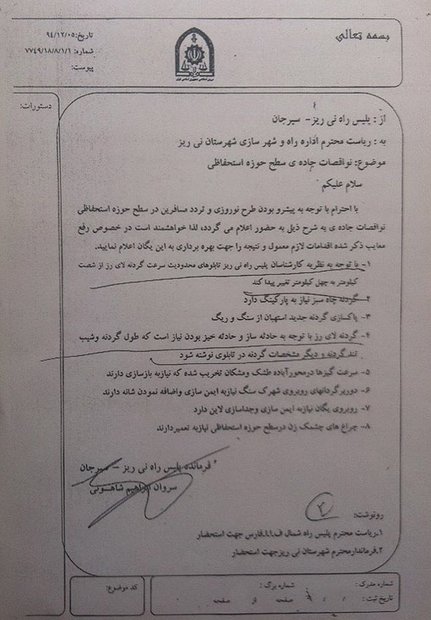 بسمه تعالی
تاریخ: ۹۴/۱۲/۰۵
شماره: ۷۷۴۹/۱۸/۸/۱/۱
پیوست:
دستورات:
از : پلیس راه نی ریز- سیرجان
به : ریاست محترم اداره راه و شهر سازی شهرستان نی ریز
موضوع: نواقصات جاده ی سطح حوزه استحفاظی
سلام علیکم
با احترام با توجه به پیشرو بودن طرح نوروزی و تردد مسافرین در سطح حوزه استحفاظی
نواقصات جاده ی به شرح ذیل به حضور اعلام می گردد، لذا خواهشمند است در خصوص رفع
معایب ذکر شده اقدامات لازم معمول و نتیجه را جهت بهره برداری به این یگان اعلام نمایید.
۱- با توجه به نظریه کارشناسان پلیس راه نی ریز تابلوهای محدودیت سرعت گردنه لای رز از شصت
کیلومتر به چهل کیلومتر تغییر پیدا کند
۲- گردنه چاه سبز نیاز به پارکینگ دارد
۳- پاکسازی گردنه جدید استهبان از سنگ و ریگ
۴- گردنه لای رز با توجه به حادثه ساز و حادثه خیز بودن نیاز است که طول گردنه وشیب
تند گردنه و دیگر مشخصات گردنه در تابلوی نوشته شود
۵- سرعت گیرها درمحورآباده طشک ومشکان تخریب شده که نیازبه بازسازی دارند
۶- دوربرگردانهای روبروی شهرک سنگ نیازبه ایمن سازی واضافه نمودن شانه دارند
۷- روبروی یگان نیازبه ایمن سازی وجداسازی لاین دارد
۸- چراغ های چشمک زن درسطح حوزه استحفاظی نیازبه تعمیردارند
فرمانده پلیس راه نی ریز – سیرجان
سروان ابراهیم شاهونی
۲
رونوشت:
۱.ریاست محترم پلیس راه شمال ف.ا.ا.فارس جهت استحضار
۲.فرماندارمحترم شهرستان نی ریزجهت استحضار
شماره مدرک: شماره برگ:
تاریخ ثبت: صفحه از صفحه
کد موضوع: